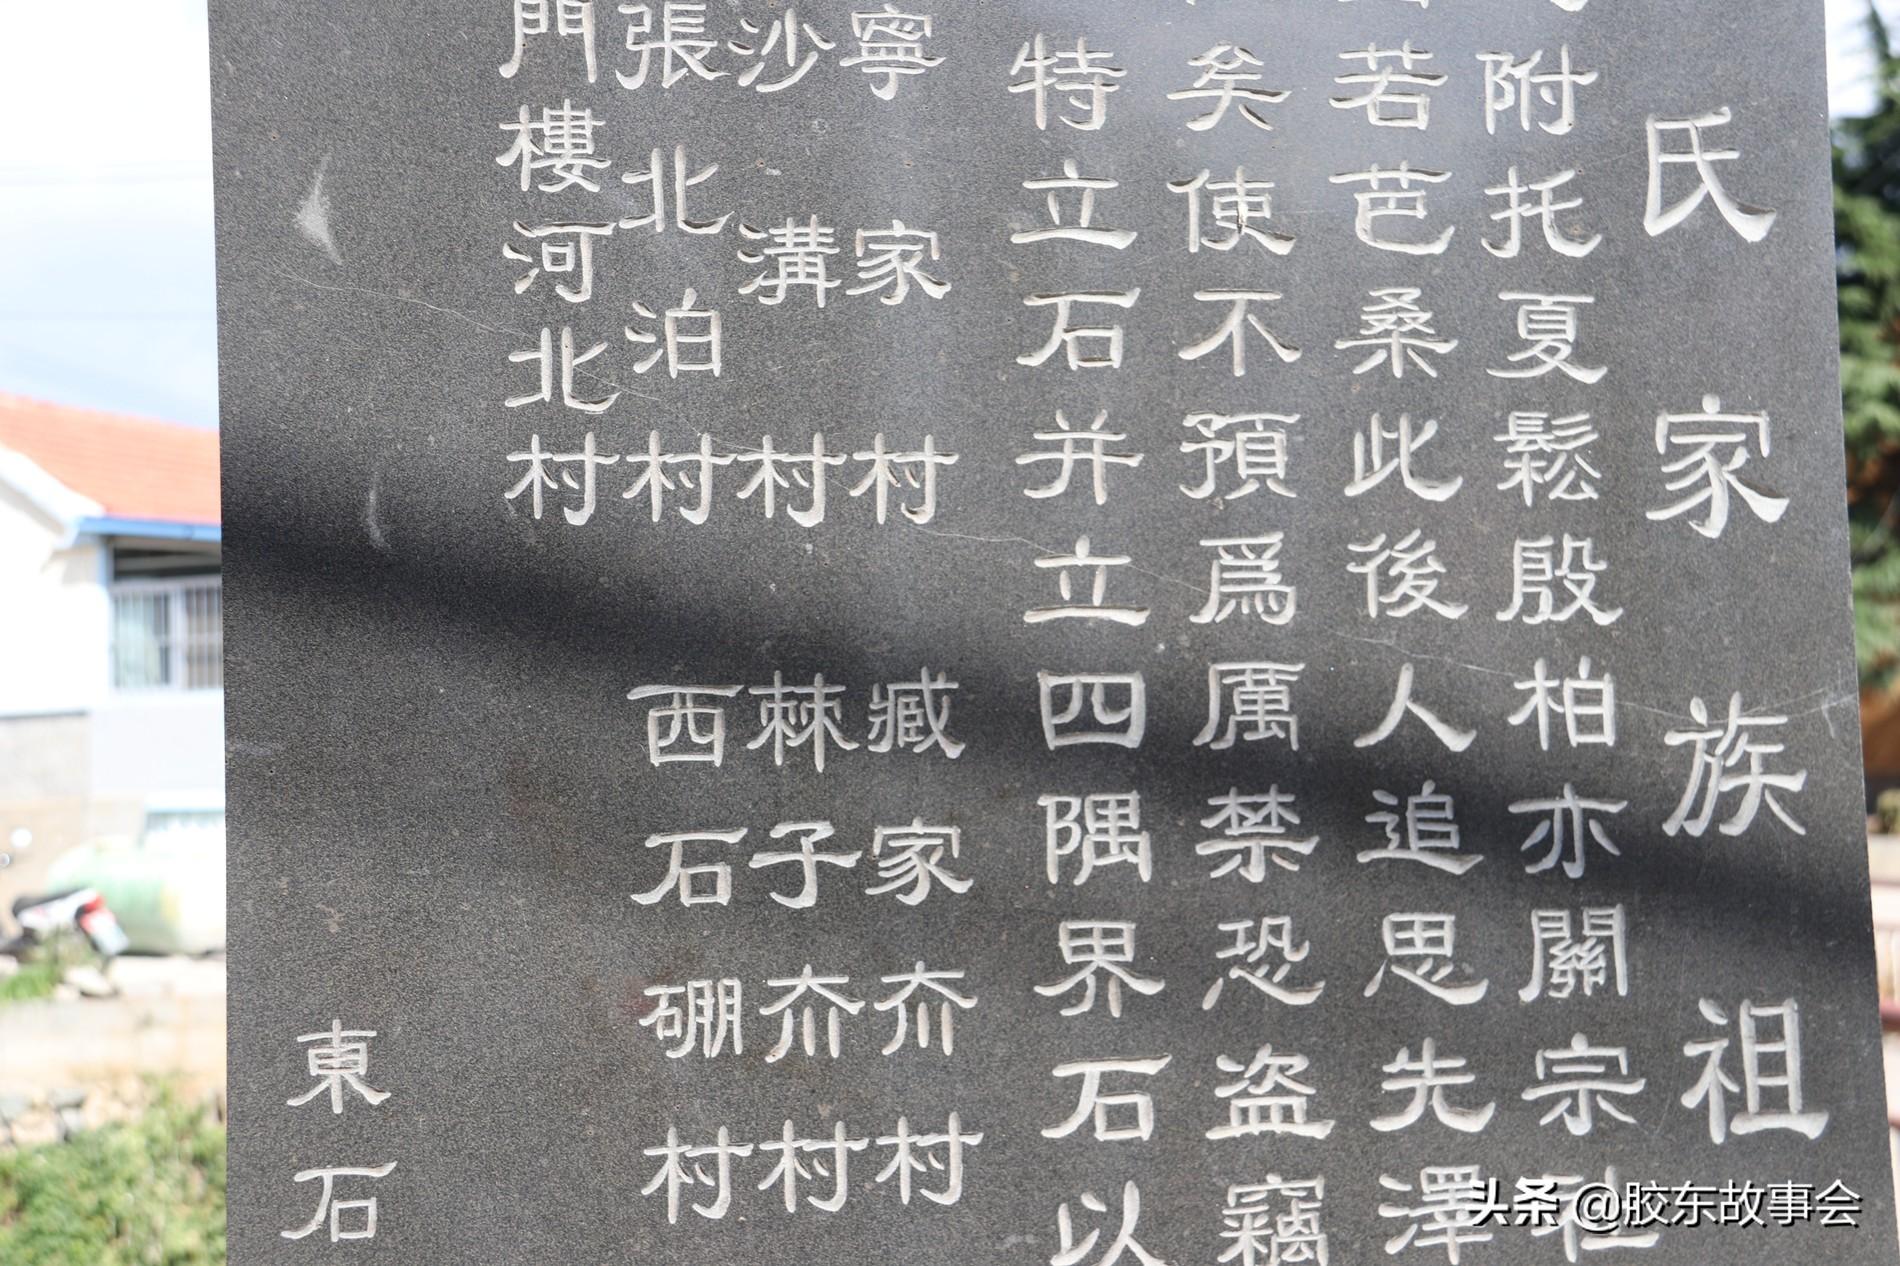 氏家族祖
附托夏鬆殷柏亦關宗社
若芭桑此後人追思先澤
矣使不預爲厲禁恐盗竊
特立石并立四隅界石以
寧家村 臧家夼村
沙溝村 棘子夼村
張北泊村 西石硼村
門樓河北村
東石
头条 @胶东故事会